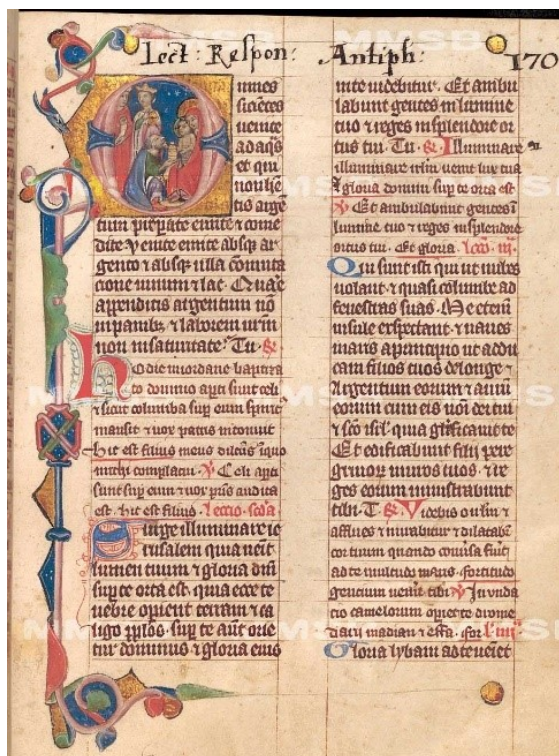 Lect: Respon: Antiph: 170
mnes
sicientes
uenite
ad aquas
et qui
non habe
tis argen
tum properate emite & come
dite Venite emite absq ar
gento & absq ulla comuta
cione uinum & lac. Quare
appenditis argentum non
in panibus & laborem urm
non in saturitate. Tu. R
Hodie in iordane baptiza
to domino aperti sunt celi
& sicut columba sup eum spiritus
mansit & uox patris intonuit
hic est filius meus dilectus in quo
michi complacui. V Celi aperti
sunt sup eum & uox pris audita
est. hic est filius. Leccio. scda
Surge illuminare ie
rusalem quia uenit
lumen tuum & gloria dni
sup te orta est. quia ecce te
nebre operient terram & ca
ligo pplos. sup te aut orie
tur dominus & gloria eius
in te uidebitur. Et ambu
labunt gentes in lumine
tuo & reges in splendore or
tus tui. Tu. R. Illuminare
illuminare irlm uenit lux tua
& gloria domini sup te orta est
V Et ambulabunt gentes i
lumine tuo & reges in splendore
ortus tui. Et gloria. lcco. iii.
Qui sunt isti qui ut nubes
uolant & quasi columbe ad
fenestras suas. Me etenim
insule exspectant & naues
maris a principio ut addu
cam filios tuos de longe &
Argentum eorum & aurum
eorum cum eis noi dei tui
& sco isrl. quia glificauit te
Et edificabunt filii pere
grinorum muros tuos. & re
ges eorum ministrabunt
tibi. T. R. Videbis
afflues & mirabitur & dilatabit
cor tuum quando conuersa fuerit
ad te multitudo maris. fortitudo
gentium uenerit tibi V Inunda
cio camelorum operiet te drome
darii madian & effa. for l. iiii
Gloria lybani ad te ueniet
MMSB